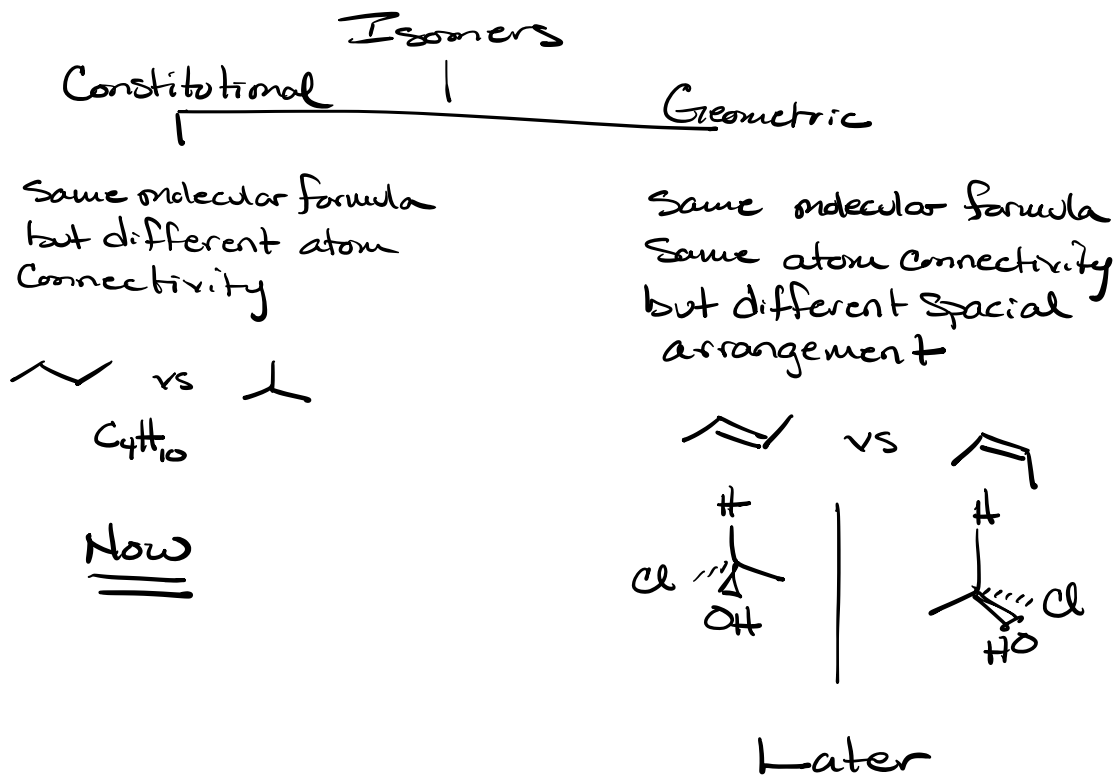 Isomers
Constitutional
Geometric
Same molecular formula
but different atom
Connectivity
vs
C4H10
Now
Same molecular formula
Same atom connectivity
but different Spacial
arrangement
vs
H
Cl
OH
H
Cl
HO
Later